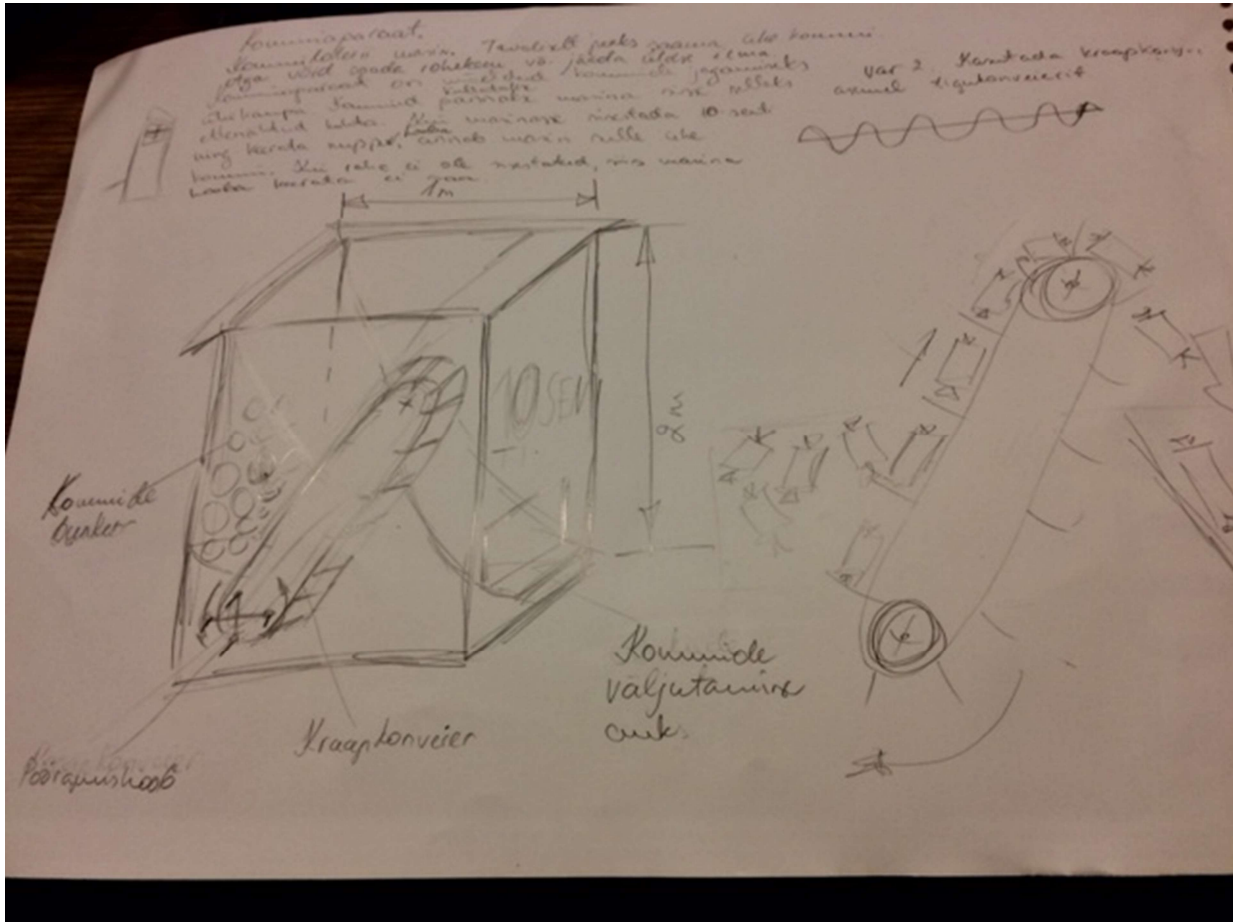 Kommiaparaat.
masin. Tavaliselt peks saama ühe kommi
aga võid saada rohkem või jääda üldse ilma
Kommiaparaat on mõeldud kommide jagamiseks
Kommid pannakse masina sisse selleks
ettenähtud kohta. Kui masinasse sisestada 10 senti
ning keerata nuppu, annab masin sulle ühe
kommi. Kui raha ei ole sisestatud, siis masina
hooba keerata ei saa
Var 2. Kasutada kraapkonv..
asemel tigukonveierit
1m
10SEN
2m
Kommide
bunker
Kommide
väljutamise
auk.
Kraapkonveier
Pööramishoob